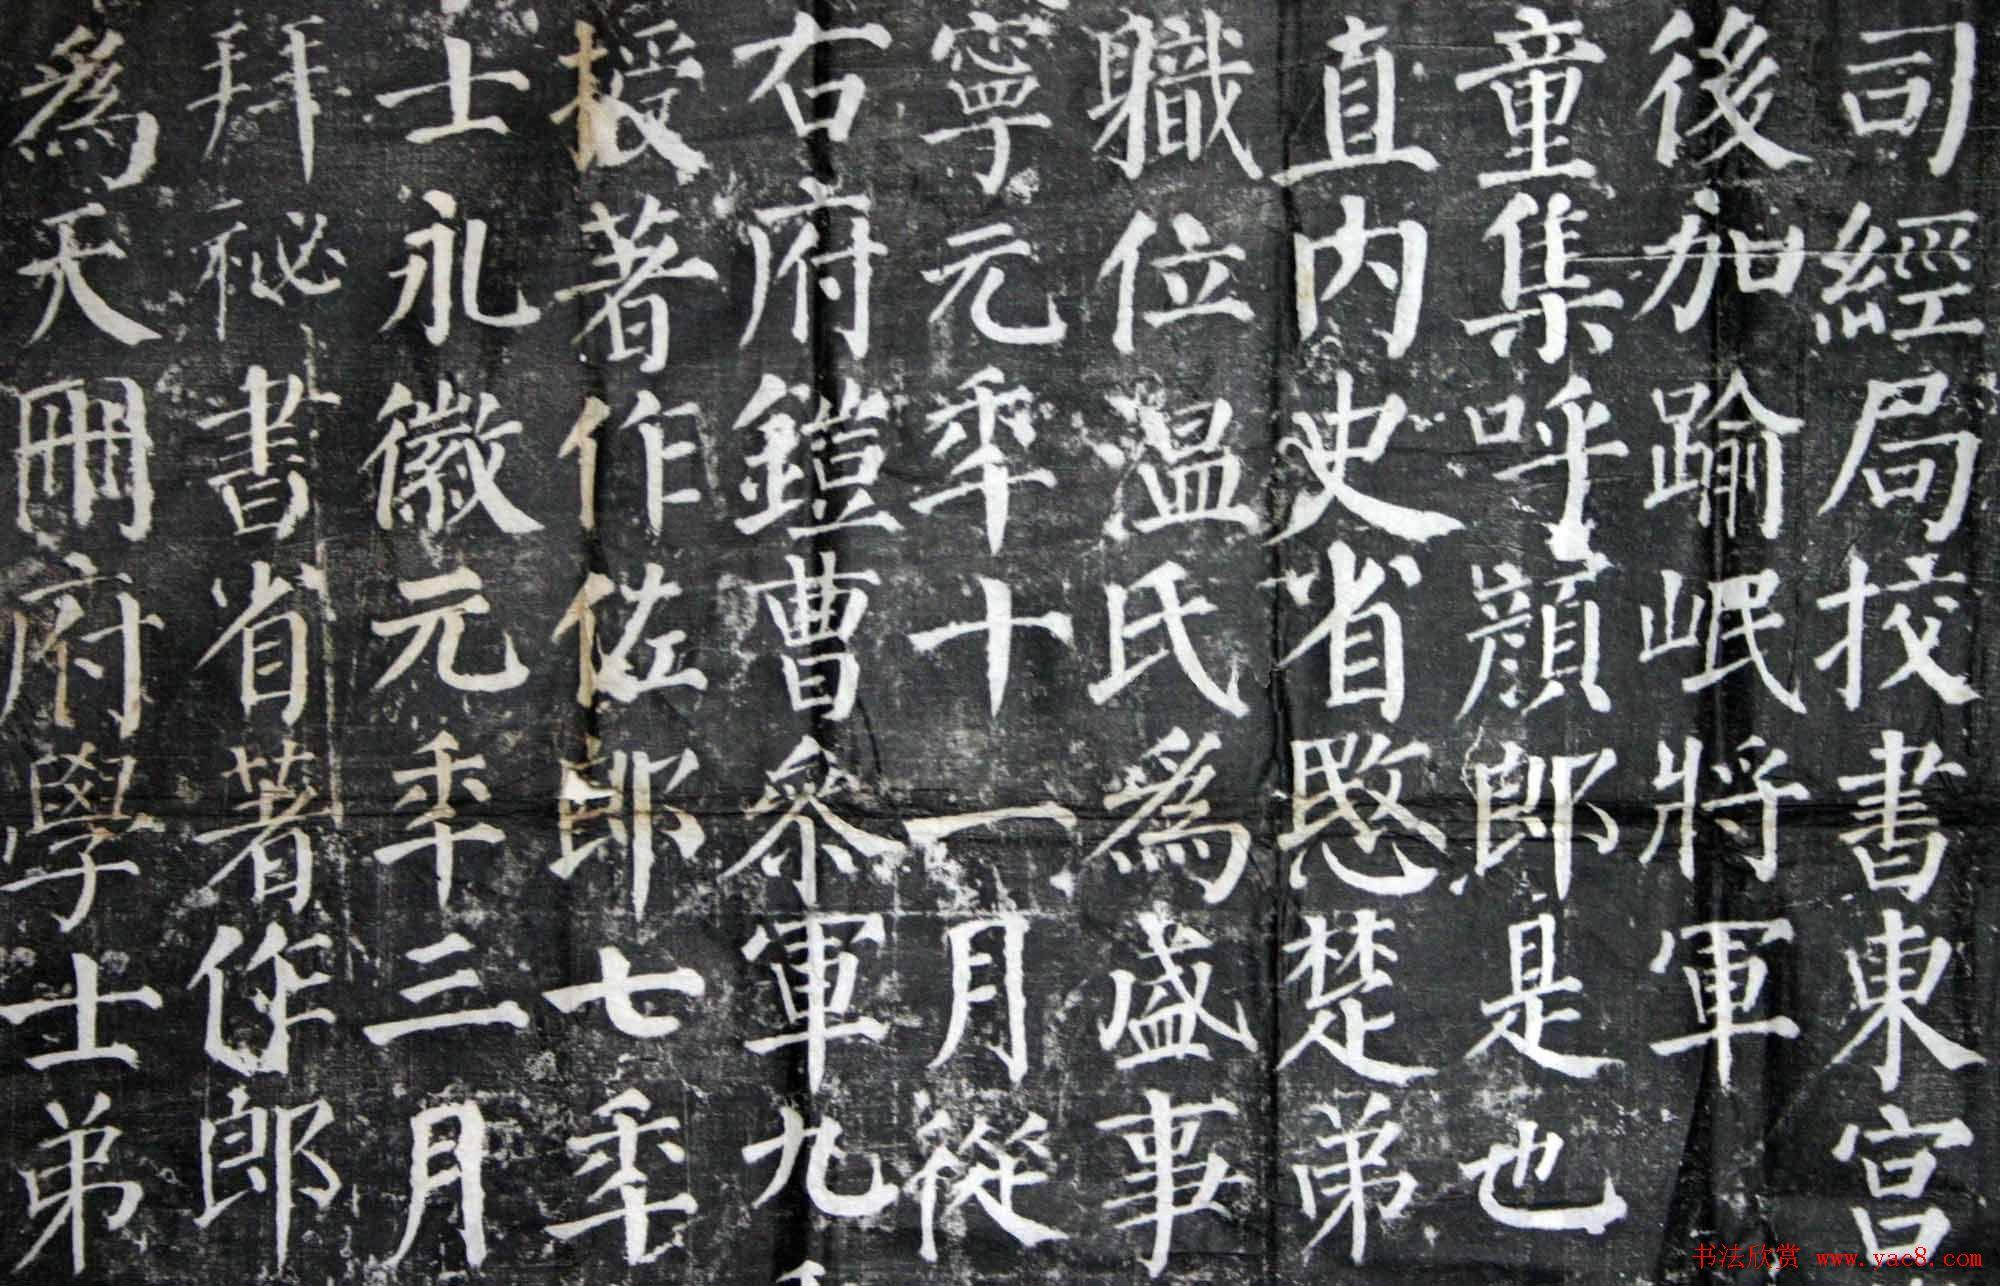 司經局挍書東宮
後加踰岷將軍
童集呼顏郎是也
直內史省愍楚弟
職位溫氏爲盛事
寧元年十一月從
右府鎧曹參軍九
授著作佐郎七年
士永徽元年三月
拜祕書省著作郎
爲天冊府學士弟
书法欣赏 www.yac8.com